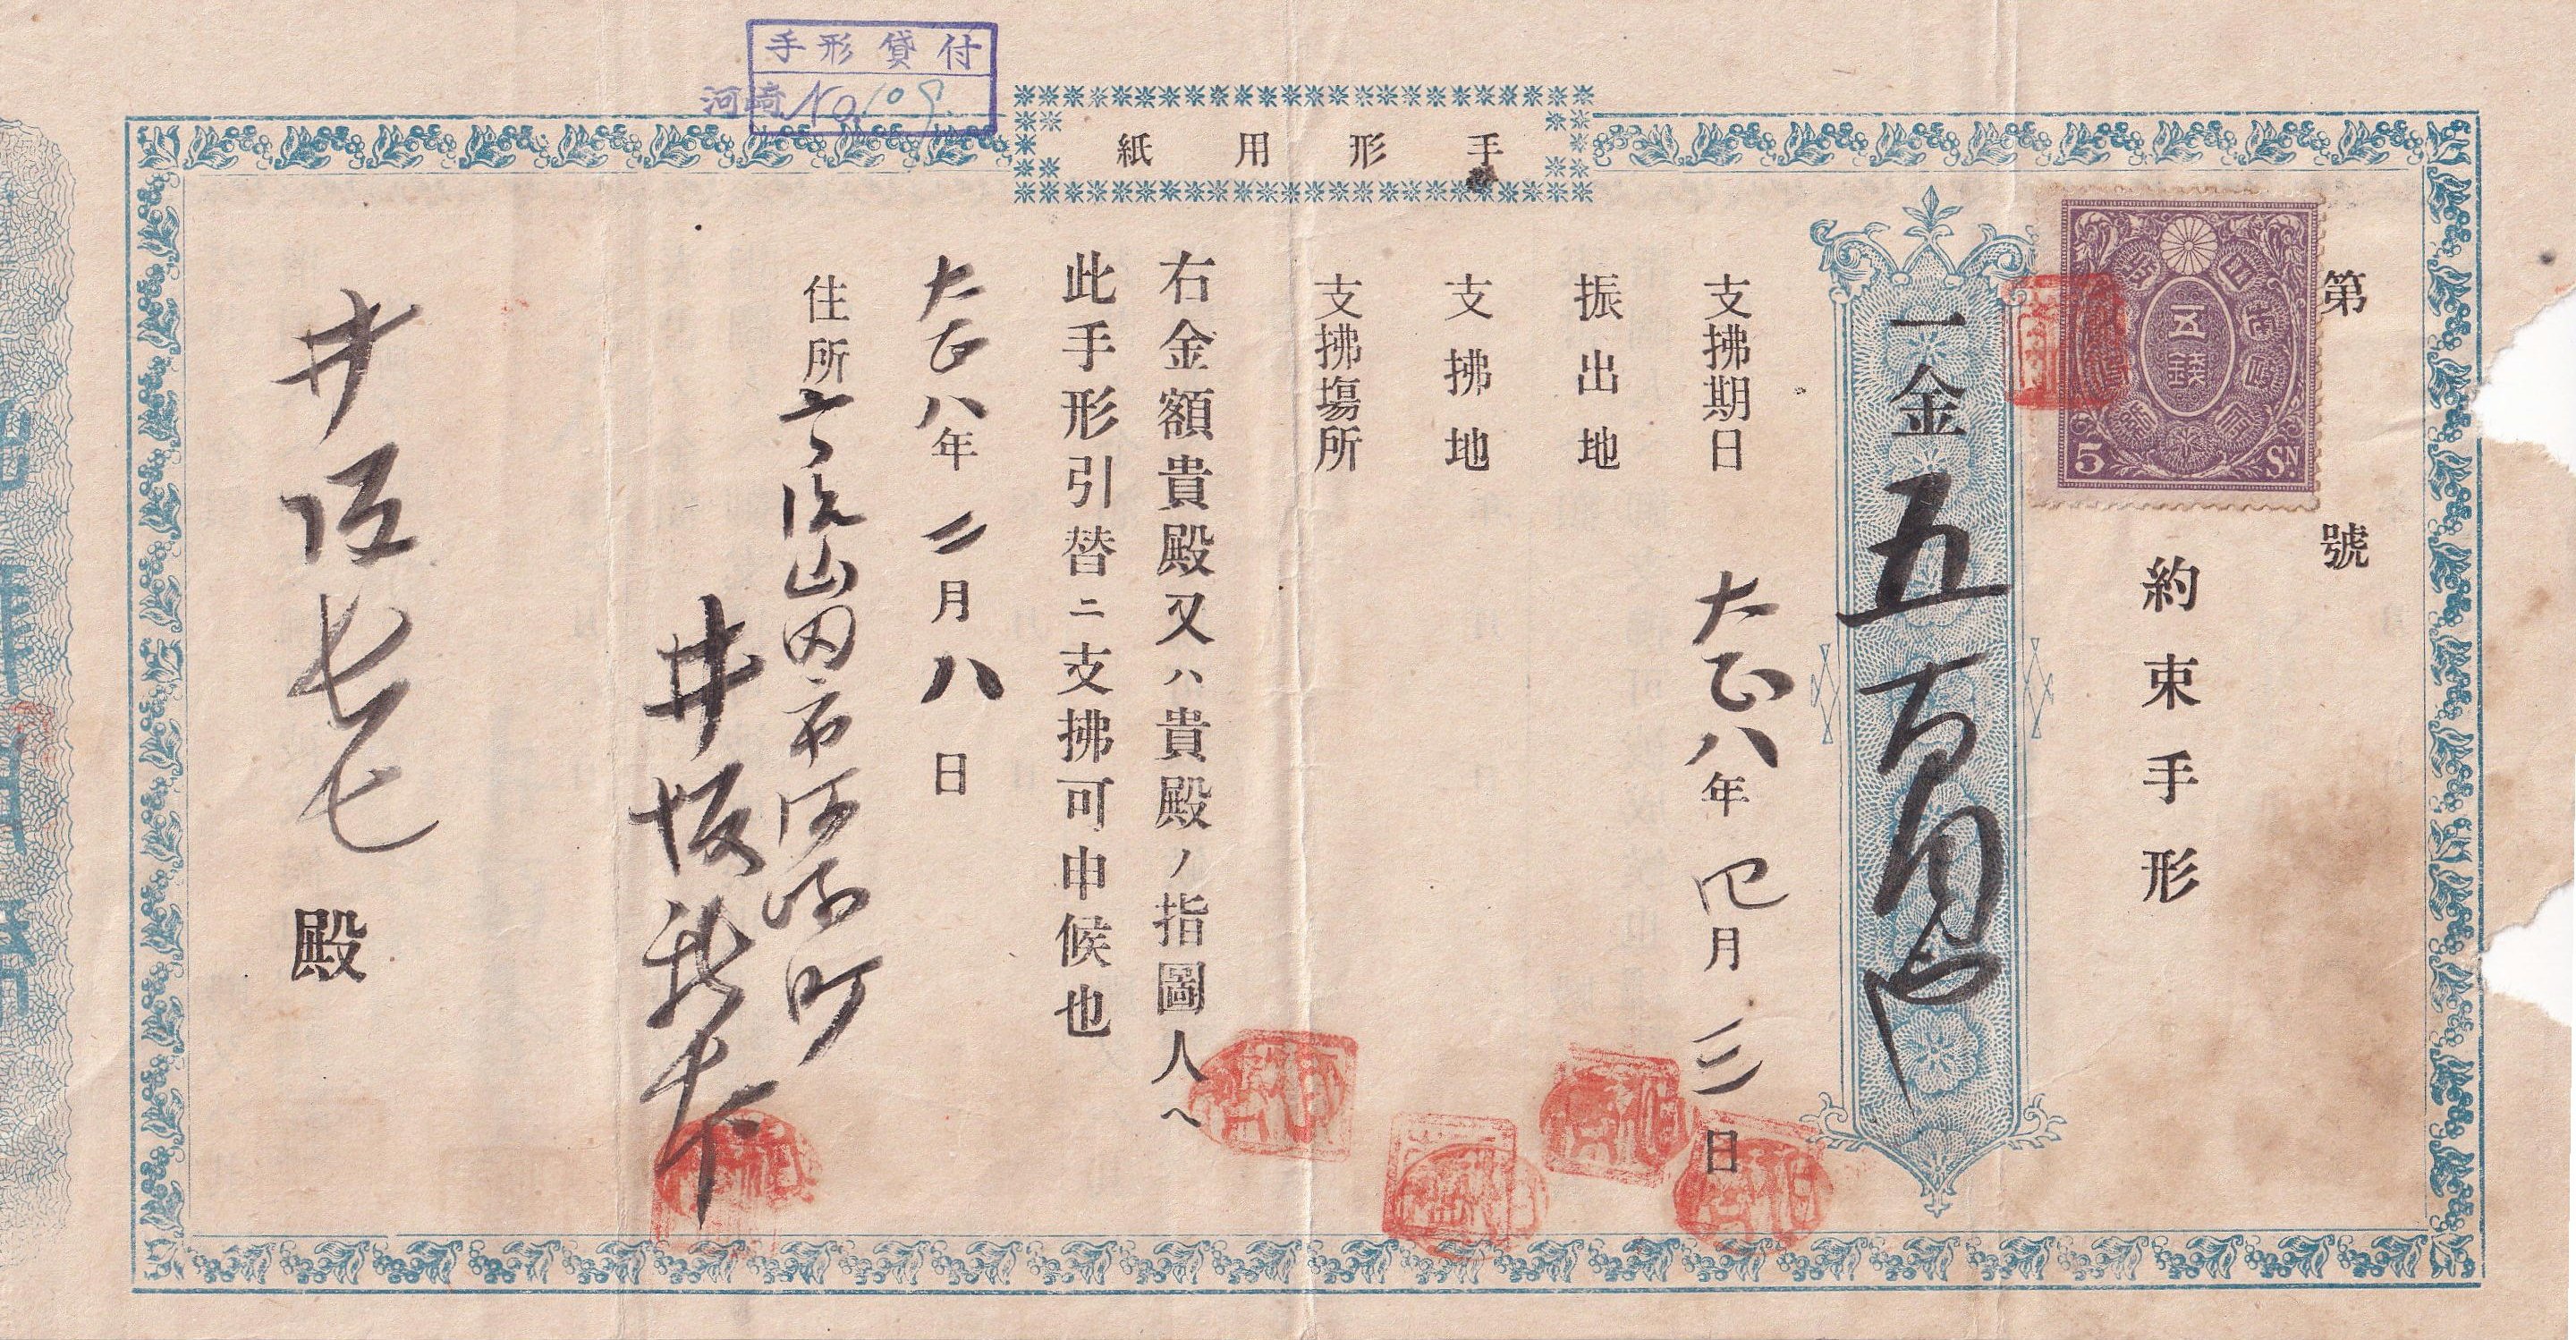 手形貸付
河崎 No.109.
手形用紙
第 號
大日本帝國政府
五錢
5 SN.
約束手形
一金五百円也
支拂期日 大正八年四月三日
振出地
支拂地
支拂塲所
右金額貴殿又ハ貴殿ノ指圖人ヘ
此手形引替ニ支拂可申候也
大正八年二月八日
住所 宇治山田市河崎町
井坂
井坂 七 殿